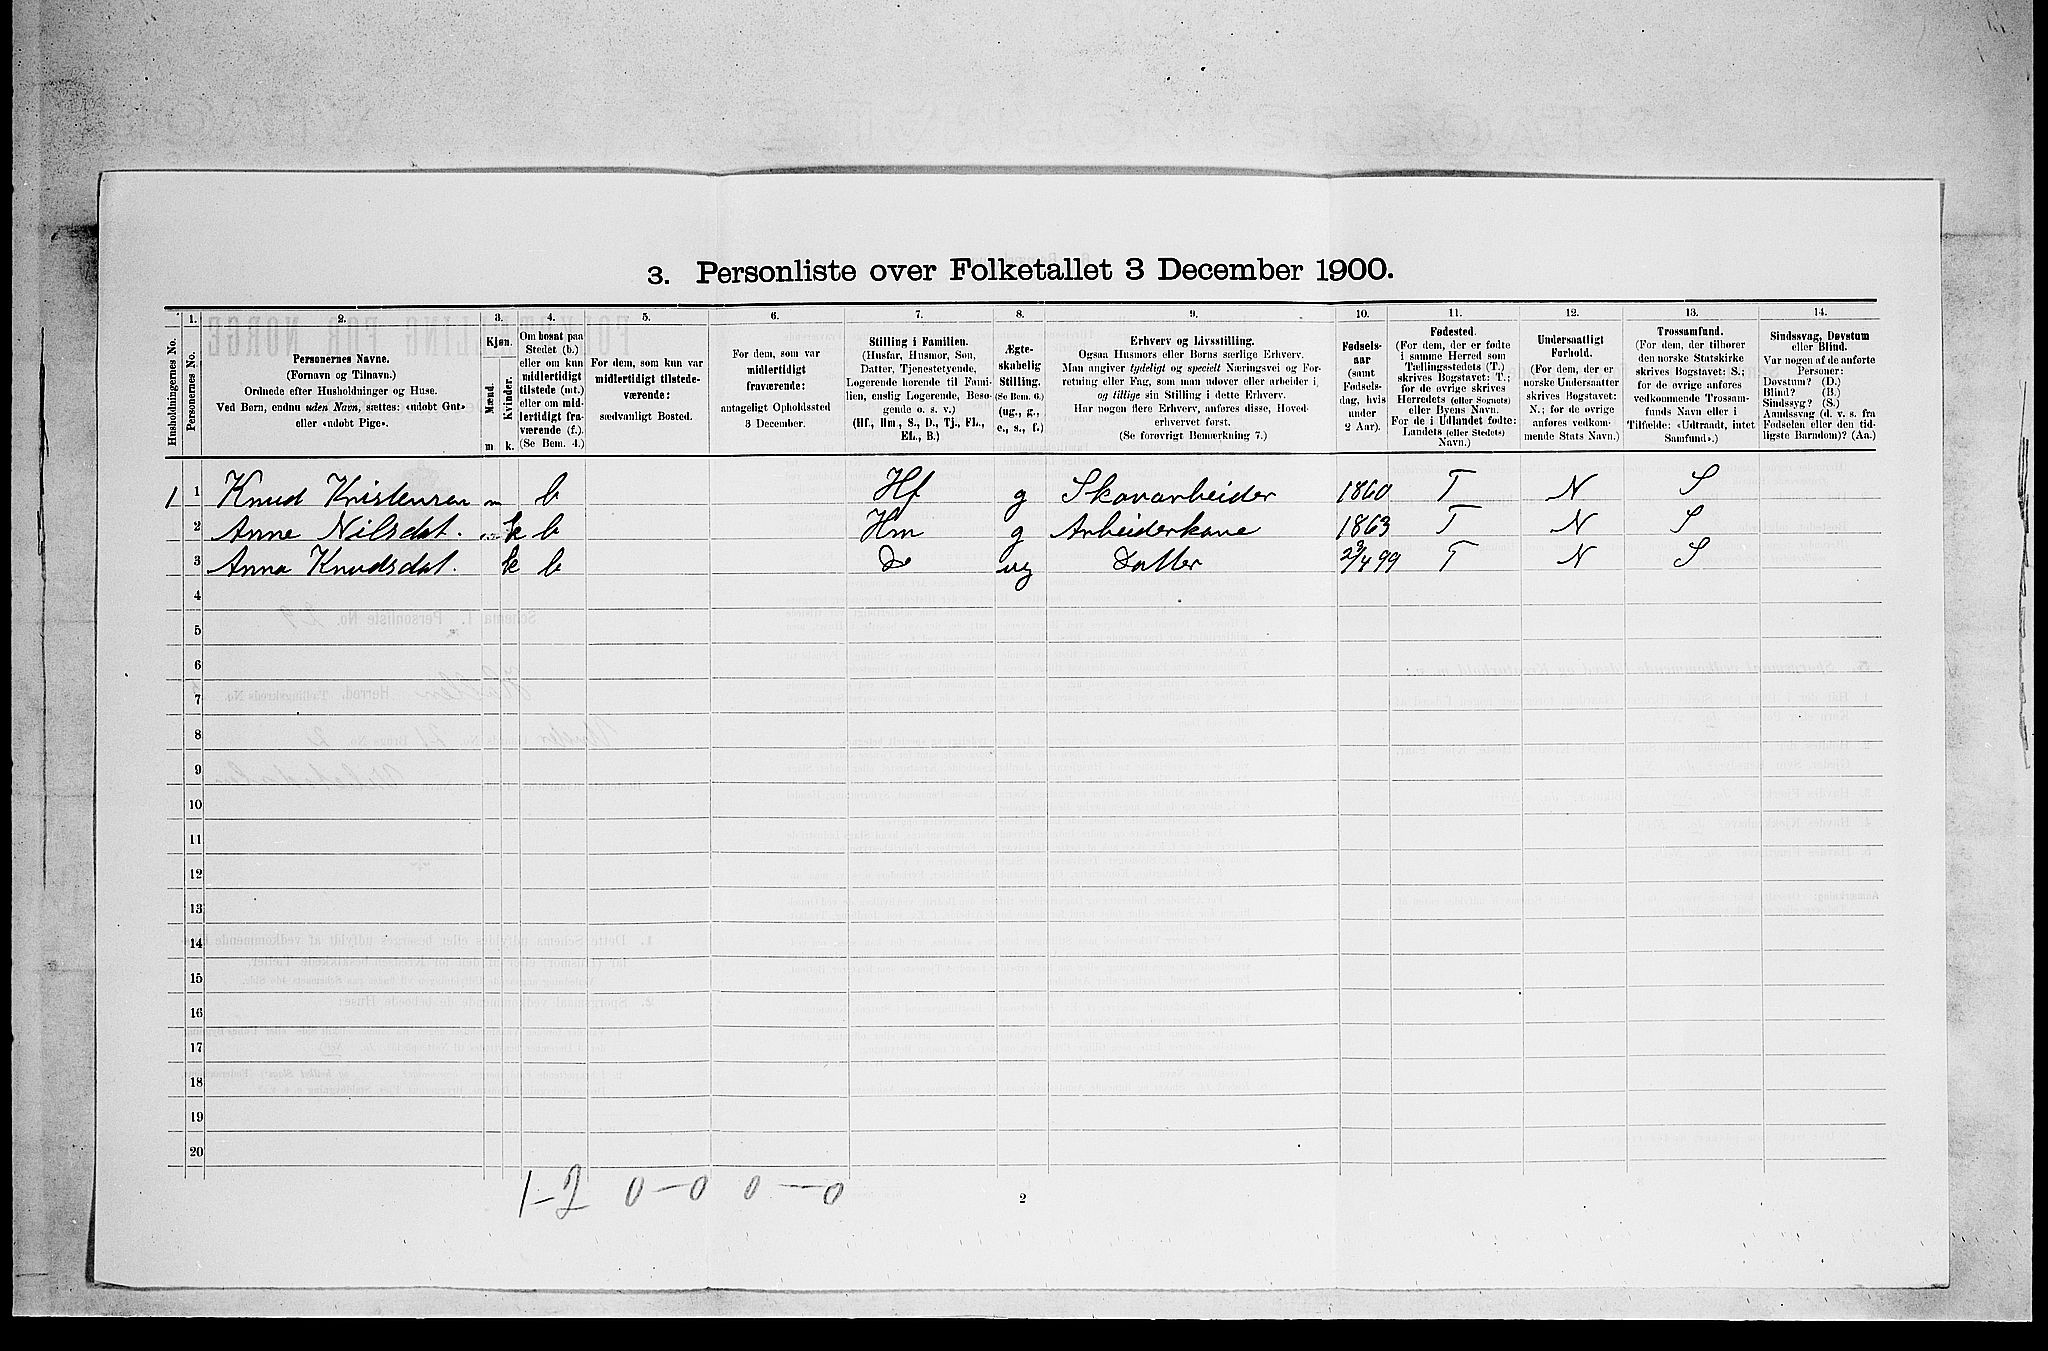 3. Personliste over Folketallet 3 December 1900.
Husholdningernes No.
1.
Personernes No.
2.
Personernes Navne.
(Fornavn og Tilnavn.)
Ordnede efter Husholdninger og Huse.
Ved Børn, endnu uden Navn, sættes: «udøbt Gut»
eller «udøbt Pige».
3.
Kjøn.
Mænd.
Kvinder.
m k.
4.
Om bosat paa
Stedet (b.)
eller om kun
midlertidigt
tilstede (mt.)
eller om mid-
lertidigt fra-
værende (f.).
(Se Bem. 4.)
5.
For dem, som kun var
midlertidigt tilstede-
værende:
sædvanligt Bosted.
6.
For dem, som var
midlertidigt
fraværende:
antageligt Opholdssted
3 December.
7.
Stilling i Familien.
(Husfar, Husmor, Søn,
Datter, Tjenestetyende,
Logerende hørende til Fami-
lien, enslig Logerende, Besø-
gende o. s. v.)
(Hf., Hm., S., D., Tj., FL.,
EL., B.)
8.
Ægte-
skabelig
Stilling.
(Se Bem. 6.)
(ug., g.,
e., s., f.)
9.
Erhverv og Livsstilling.
Ogsaa Husmors eller Børns særlige Erhverv.
Man angiver tydeligt og specielt Næringsvei og For-
retning eller Fag, som man udøver eller arbeider i,
og tillige sin Stilling i dette Erhverv.
Har nogen flere Erhverv, anføres disse, Hoved-
erhvervet først.
(Se forøvrigt Bemærkning 7.)
10.
Fødsels-
aar
(samt
Fødsels-
dag, hvis
under
2 Aar).
11.
Fødested.
(For dem, der er fødte
i samme Herred som
Tællingsstedets (T.)
skrives Bogstavet: T.;
for de øvrige skrives
Herredets (eller Sognets)
eller Byens Navn.
For de i Udlandet fødte:
Landets (eller Stedets)
Navn.)
12.
Undersaatligt
Forhold.
(For dem, der er
norske Undersaatter
skrives Bogstavet:
N.; for de øvrige
anføres vedkom-
mende Stats Navn.)
13.
Trossamfund.
(For dem, der tilhører
den norske Statskirke
skrives Bogstavet: S.;
for de øvrige anføres
vedkommende Trossam-
funds Navn eller i
Tilfælde: «Udtraadt, intet
Samfund».)
14.
Sindssvag, Døvstum
eller Blind.
Var nogen af de anførte
Personer:
Døvstum? (D.)
Blind? (B.)
Sindssyg? (S.)
Aandssvag (d. v. s. fra
Fødselen eller den tid-
ligste Barndom)? (Aa.)
1 1 Knud Kristensen m b Hf g Skovarbeider 1860 T N S
2 Anne Nilsdat. k b Hm g Arbeiderkone 1863 T N S
3 Anna Knudsdat. k b D ug Datter 23/4 99 T N S
4
5
6
7
8
9
10
11
12
13
14
15
16
17
18
19
20
1-2 0-0 0-0
2